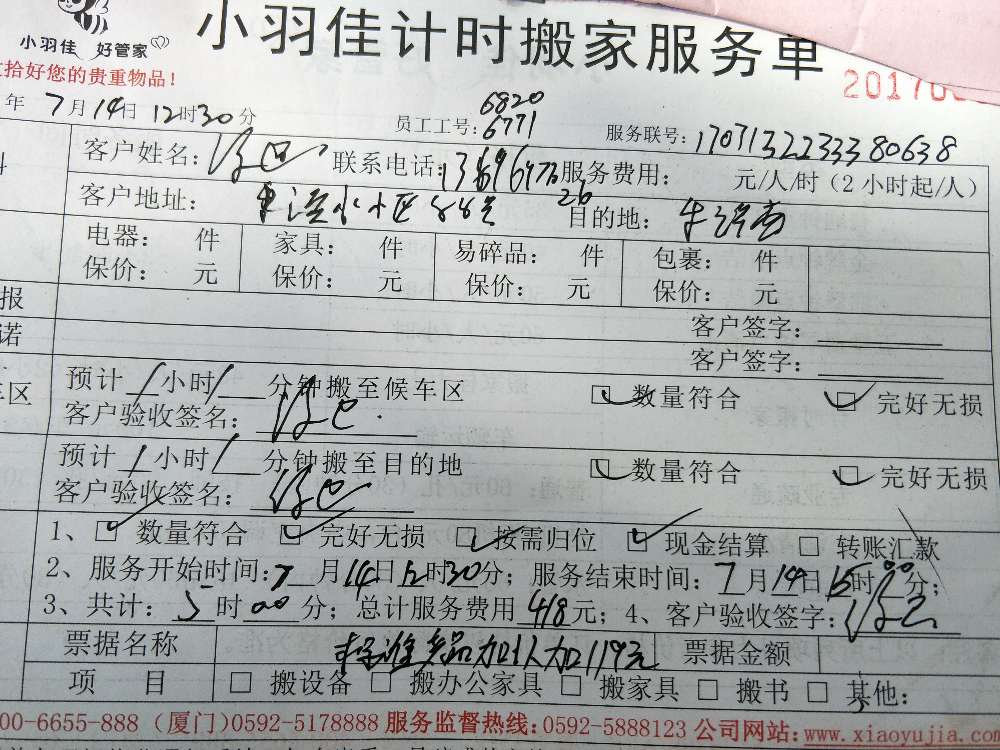 小羽佳 好管家
小羽佳计时搬家服务单
拾好您的贵重物品！
年 7月14日 12时30分
员工工号：6820 6771
服务联号：17071322333380638
客户姓名： 联系电话： 服务费用： 元/人/时（2小时起/人）
客户地址： 目的地：
电器： 件 家具： 件 易碎品： 件 包裹： 件
保价： 元 保价： 元 保价： 元 保价： 元
报
诺
客户签字：
客户签字：
预计 / 小时 / 分钟搬至候车区 数量符合 完好无损
车区
客户验收签名：
预计 / 小时 / 分钟搬至目的地 数量符合 完好无损
客户验收签名：
1、 数量符合 完好无损 按需归位 现金结算 转账汇款
2、服务开始时间：7月14日12时30分；服务结束时间：7月14日15时00分；
3、共计：5时00分；总计服务费用418元；4、客户验收签字：
票据名称 加1人加119元 票据金额
项 目 搬设备 搬办公家具 搬家具 搬书 其他：
00-6655-888 (厦门)0592-5178888 服务监督热线:0592-5888123 公司网站:www.xiaoyujia.com